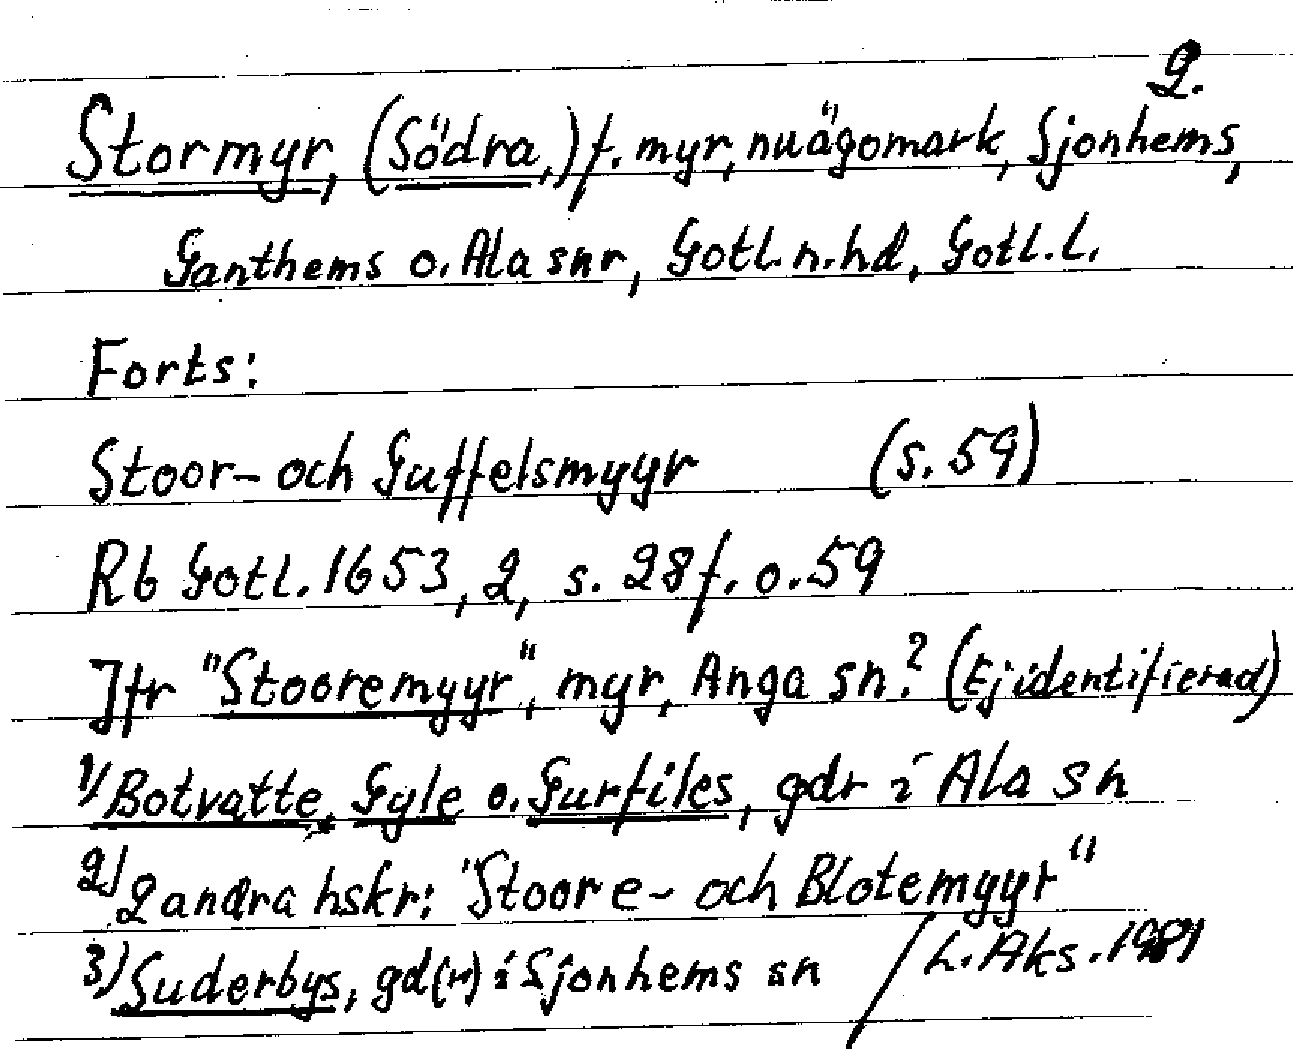 2.
Stormyr, (Södra,) f. myr, nu ägomark, Sjonhems,
Ganthems o. Ala snr, Gotl. n. hd, Gotl. l.
Forts:
Stoor- och Guffelsmyyr (s. 59)
Rb Gotl. 1653, 2, s. 28 f. o. 59
Jfr "Stooremyyr", myr, Anga sn? (Ej identifierad)
1) Botvatte, Gyle o. Gurfiles, gdr i Ala sn
2) 2 andra hskr: "Stoore- och Blotemyyr"
3) Suderbys, gd(r) i Sjonhems sn / L. Aks. 1981